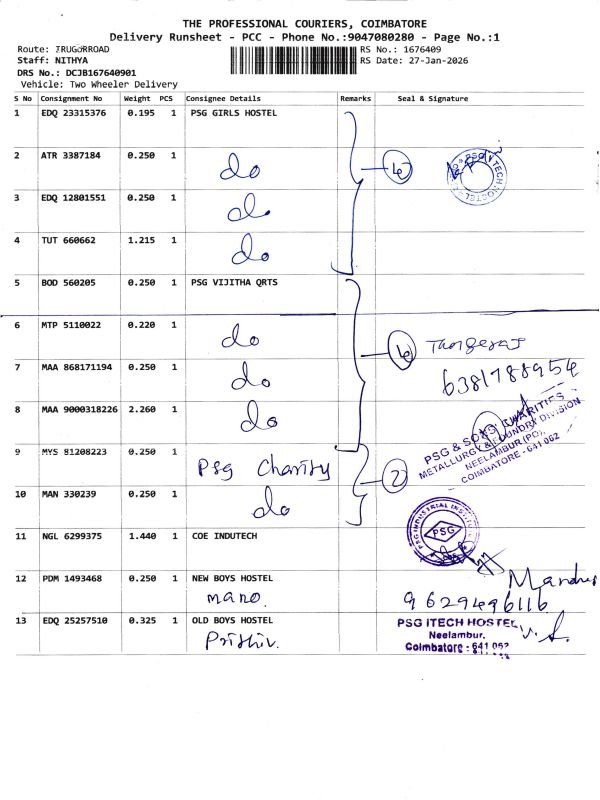 THE PROFESSIONAL COURIERS, COIMBATORE
Delivery Runsheet - PCC - Phone No.:9047080280 - Page No.:1
Route: IRUGURROAD
RS No.: 1676409
Staff: NITHYA
RS Date: 27-Jan-2026
DRS No.: DCJB167640901
Vehicle: Two Wheeler Delivery
S No Consignment No Weight PCS Consignee Details Remarks Seal & Signature
1 EDQ 23315376 0.195 1 PSG GIRLS HOSTEL
2 ATR 3387184 0.250 1 do
4
PSG ITECH HOSTEL
3 EDQ 12801551 0.250 1 do
4 TUT 660662 1.215 1 do
5 BOD 560205 0.250 1 PSG VIJITHA QRTS
6 MTP 5110022 0.220 1 do
4 Thangaraj
7 MAA 868171194 0.250 1 do
6381788954
8 MAA 9000318226 2.260 1 do
PSG & SONS' CHARITIES
METALLURGY & FOUNDRY DIVISION
NEELAMBUR (PO),
COIMBATORE - 641 062
9 MYS 81208223 0.250 1 Psg Charity
2
10 MAN 330239 0.250 1 do
PSG INDUSTRIAL INSTITUTE
PSG
11 NGL 6299375 1.440 1 COE INDUTECH
12 PDM 1493468 0.250 1 NEW BOYS HOSTEL
mano.
9629496116
13 EDQ 25257510 0.325 1 OLD BOYS HOSTEL
Prithiv.
PSG ITECH HOSTEL
Neelambur.
Coimbatore - 641 062